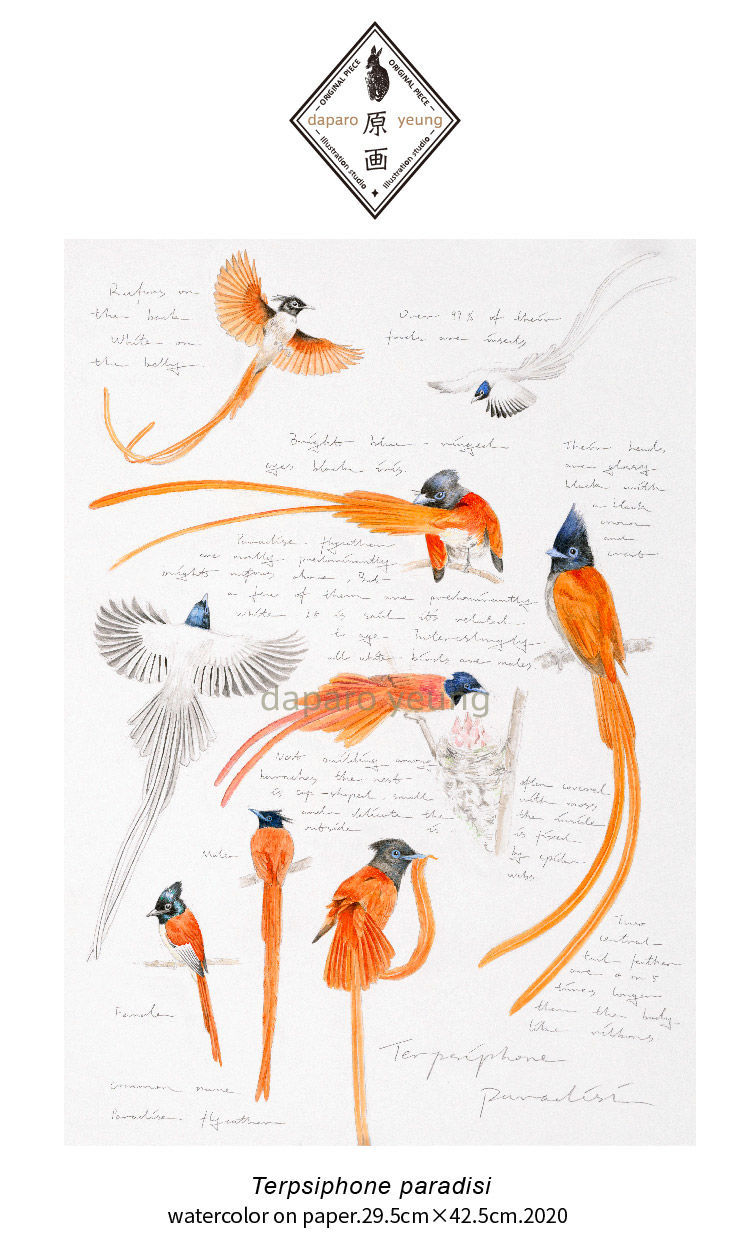 ORIGINAL PIECE
ORIGINAL PIECE
daparo yeung
原
画
Illustration studio
Illustration studio
Rufous on
the back
White on
the belly
Over 97% of their
foods are insects
Bright blue - ringed
eyes black iris.
Their heads
are glossy
black with
a black
crown
and
crest
Paradise - flycatcher
are mostly predominantly
above, But
a few of them are predominantly
white it is said it's related
to age. Interestingly
all white birds are males
daparo yeung
Nest building among
branches the nest
is cup-shaped, small
and delicate the
outside is
often covered
with moss,
the inside
is fixed
by spider
webs
Male
Female
Two
central
tail feathers
are 4 or 5
times longer
than the body
like ribbons
Terpsiphone
paradisi
common name
Paradise flycatcher
Terpsiphone paradisi
watercolor on paper.29.5cm×42.5cm.2020